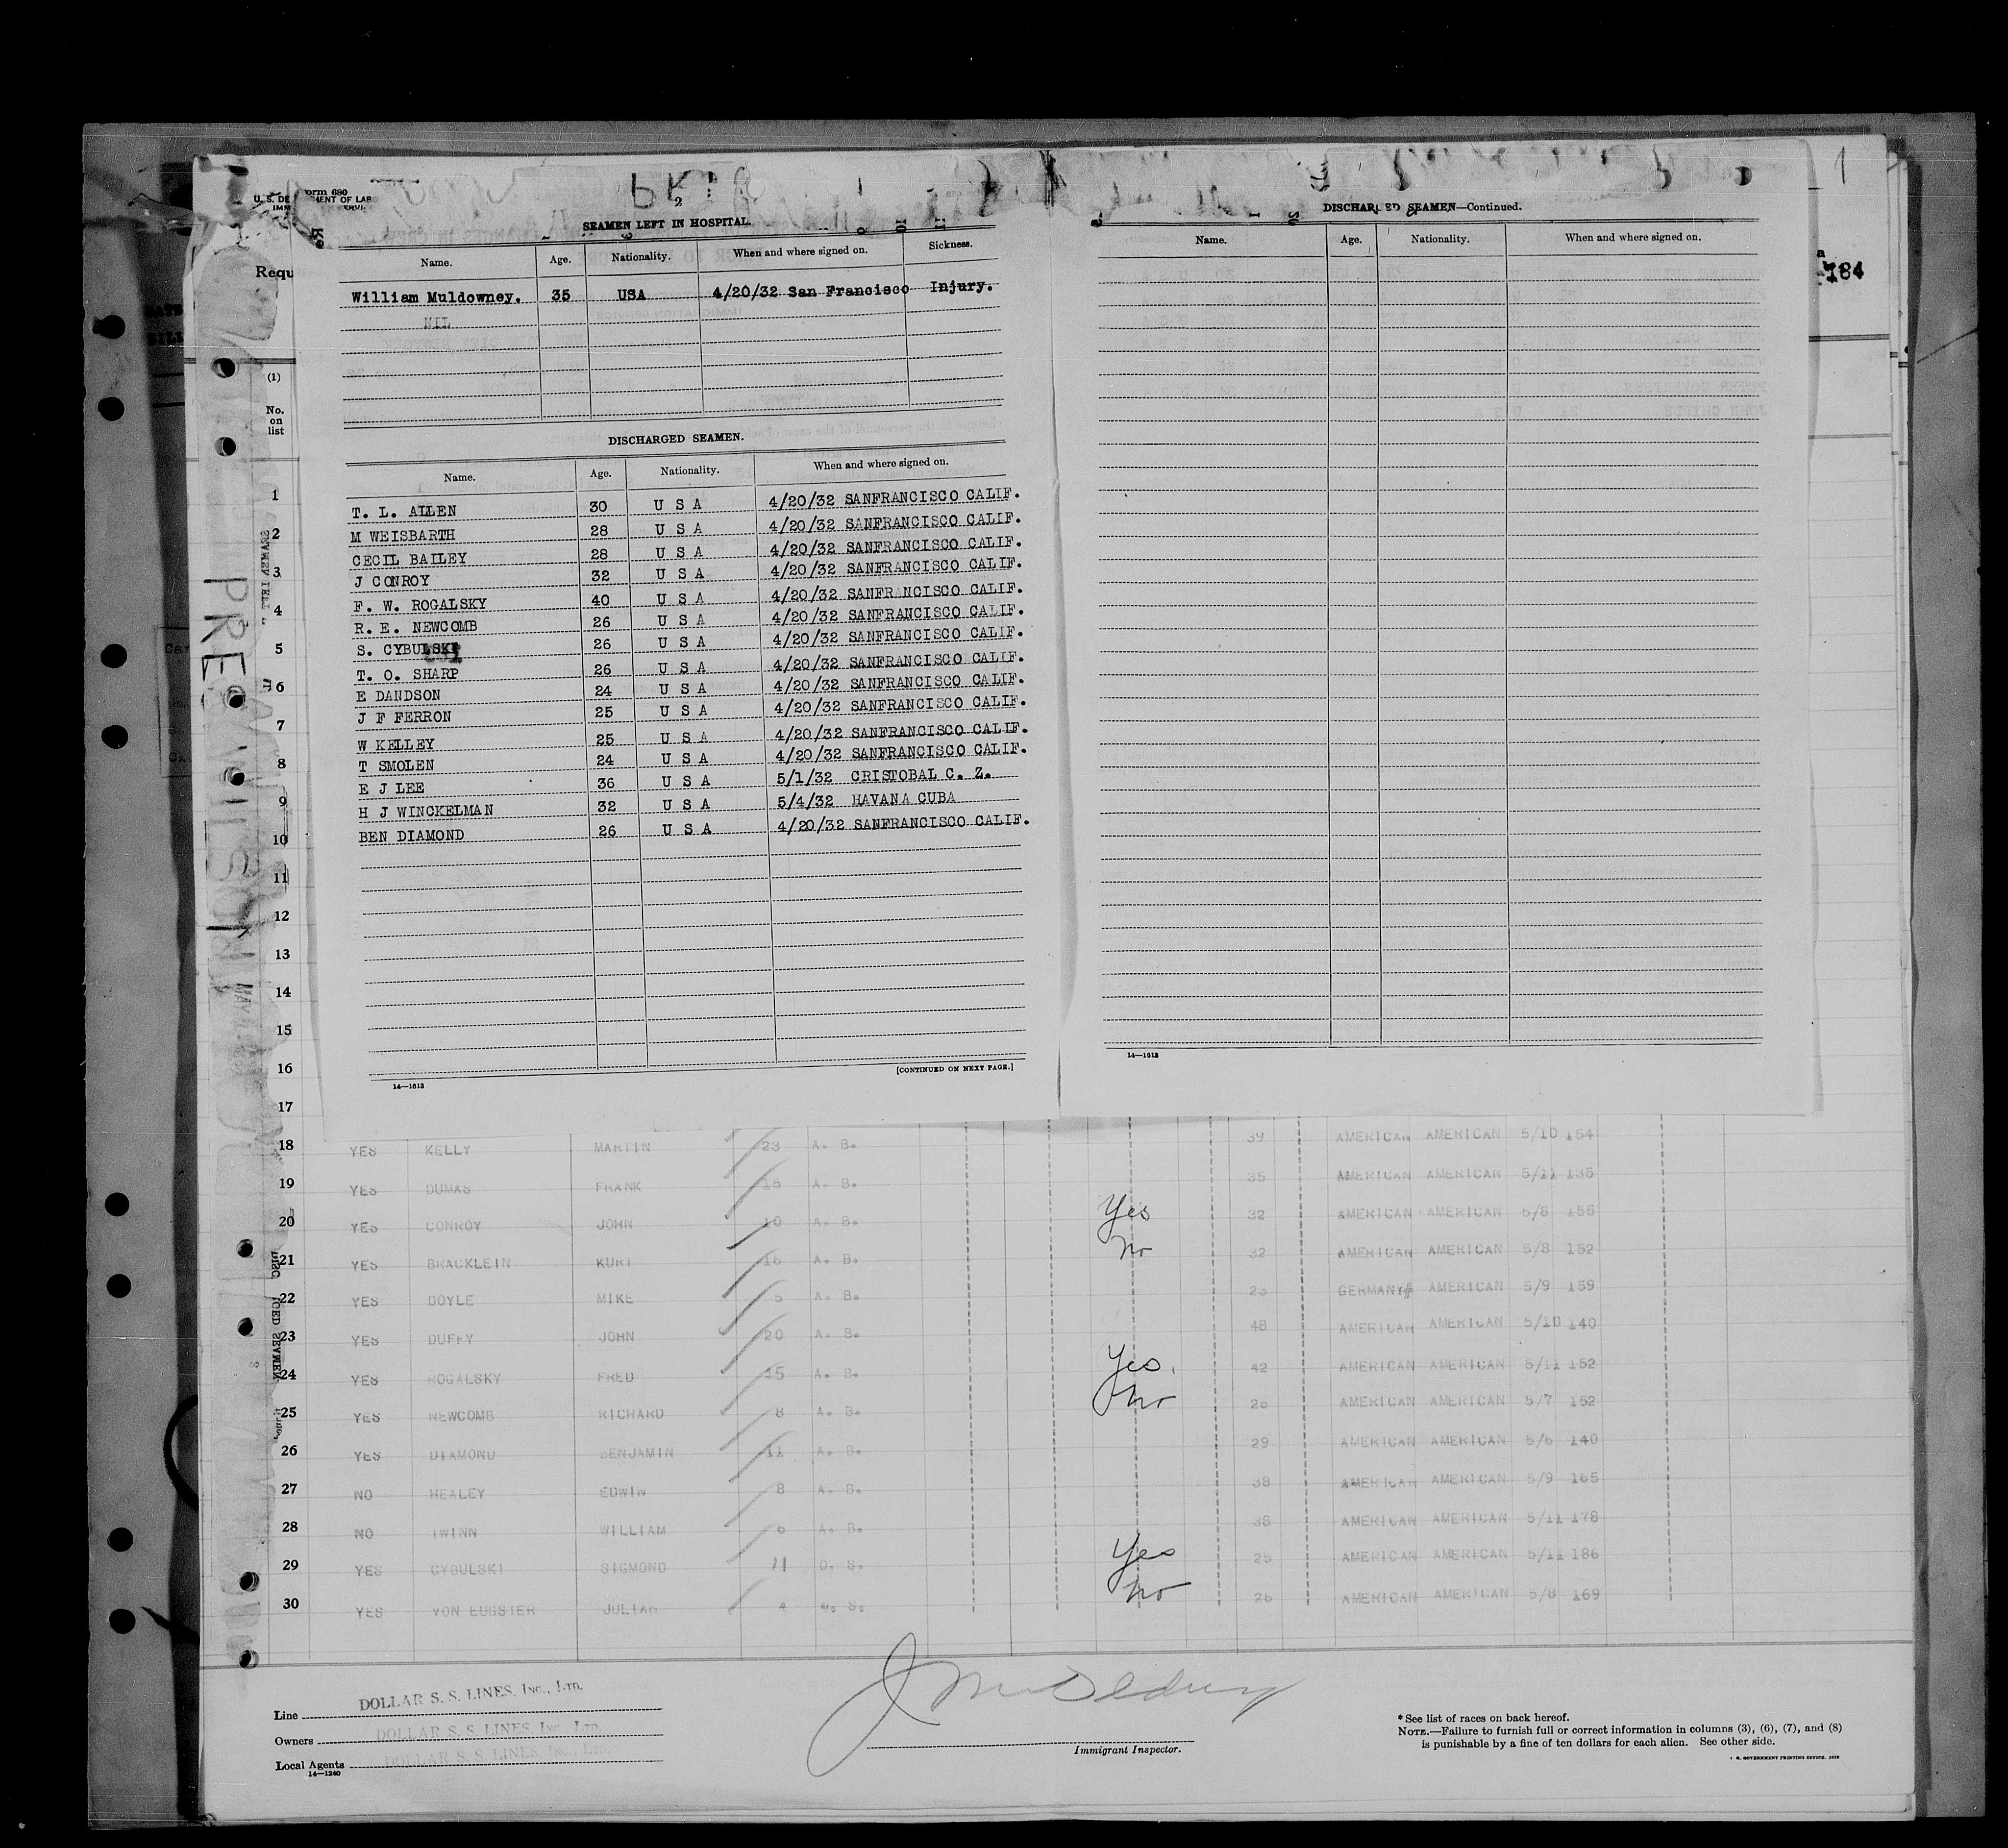 Form 680
2
SEAMEN LEFT IN HOSPITAL.
Name. Age. Nationality. When and where signed on. Sickness.
William Muldowney. 35 USA 4/20/32 San Francisco Injury.
NIL
DISCHARGED SEAMEN.
Name. Age. Nationality. When and where signed on.
T. L. ALLEN 30 U S A 4/20/32 SANFRANCISCO CALIF.
M WEISBARTH 28 U S A 4/20/32 SANFRANCISCO CALIF.
CECIL BAILEY 28 U S A 4/20/32 SANFRANCISCO CALIF.
J CONROY 32 U S A 4/20/32 SANFRANCISCO CALIF.
F. W. ROGALSKY 40 U S A 4/20/32 SANFRANCISCO CALIF.
R. E. NEWCOMB 26 U S A 4/20/32 SANFRANCISCO CALIF.
S. CYBULSKI 26 U S A 4/20/32 SANFRANCISCO CALIF.
T. O. SHARP 26 U S A 4/20/32 SANFRANCISCO CALIF.
E DANDSON 24 U S A 4/20/32 SANFRANCISCO CALIF.
J F FERRON 25 U S A 4/20/32 SANFRANCISCO CALIF.
W KELLEY 25 U S A 4/20/32 SANFRANCISCO CALIF.
T SMOLEN 24 U S A 4/20/32 SANFRANCISCO CALIF.
E J LEE 36 U S A 5/1/32 CRISTOBAL C. Z.
H J WINCKELMAN 32 U S A 5/4/32 HAVANA CUBA
BEN DIAMOND 26 U S A 4/20/32 SANFRANCISCO CALIF.
[CONTINUED ON NEXT PAGE.]
14—1613
DISCHARGED SEAMEN—Continued.
Name. Age. Nationality. When and where signed on.
14—1613
184
(1)
No.
on
list
1
2
3
4
5
6
7
8
9
10
11
12
13
14
15
16
17
18 YES KELLY MARTIN 23 A. B. 39 AMERICAN AMERICAN 5/10 154
19 YES DUMAS FRANK 15 A. B. 35 AMERICAN AMERICAN 5/11 135
20 YES CONROY JOHN 10 A. B. Yes 32 AMERICAN AMERICAN 5/8 155
21 YES BRACKLEIN KURT 16 A. B. no 32 AMERICAN AMERICAN 5/8 152
22 YES DOYLE MIKE 5 A. B. 23 GERMANY AMERICAN 5/9 159
23 YES DUFFY JOHN 20 A. B. 48 AMERICAN AMERICAN 5/10 140
24 YES ROGALSKY FRED 15 A. B. Yes. 42 AMERICAN AMERICAN 5/11 152
25 YES NEWCOMB RICHARD 8 A. B. no 26 AMERICAN AMERICAN 5/7 152
26 YES DIAMOND BENJAMIN 11 A. B. 29 AMERICAN AMERICAN 5/6 140
27 NO HEALEY EDWIN 8 A. B. 38 AMERICAN AMERICAN 5/9 165
28 NO TWINN WILLIAM 6 A. B. 38 AMERICAN AMERICAN 5/11 178
29 YES CYBULSKI SIGMOND 11 O. S. Yes 25 AMERICAN AMERICAN 5/11 186
30 YES VON EUGSTER JULIAN 4 O. S. no 26 AMERICAN AMERICAN 5/8 169
Line DOLLAR S. S. LINES, Inc., Ltd.
Owners DOLLAR S. S. LINES, Inc., Ltd.
Local Agents DOLLAR S. S. LINES, Inc., Ltd.
14—1240
Immigrant Inspector.
* See list of races on back hereof.
NOTE.—Failure to furnish full or correct information in columns (3), (6), (7), and (8)
is punishable by a fine of ten dollars for each alien. See other side.
PRES WILSON